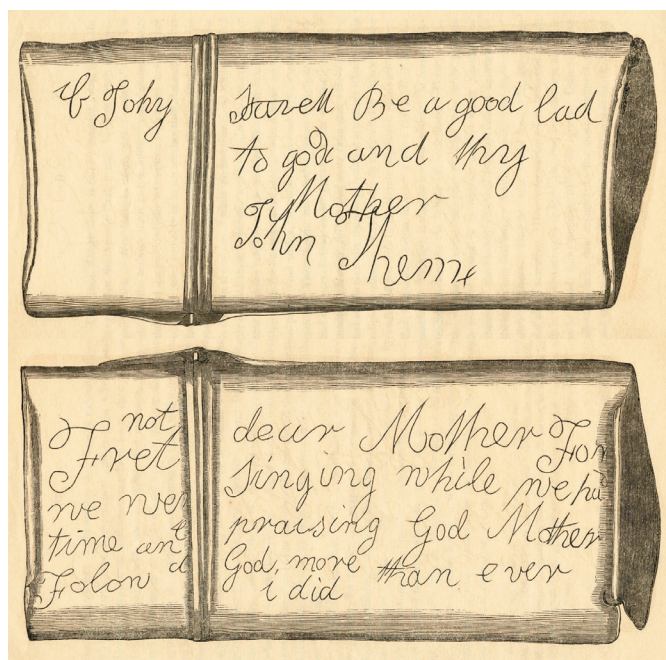 Johy
Be a good lad
to god and thy
Mother
John
not
Fret
we wer
time an
Folon d
dear Mother For
singing while we
praising God Mother
God, more than ever
i did